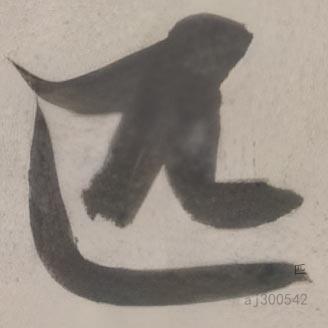 匹
匹
aj300542